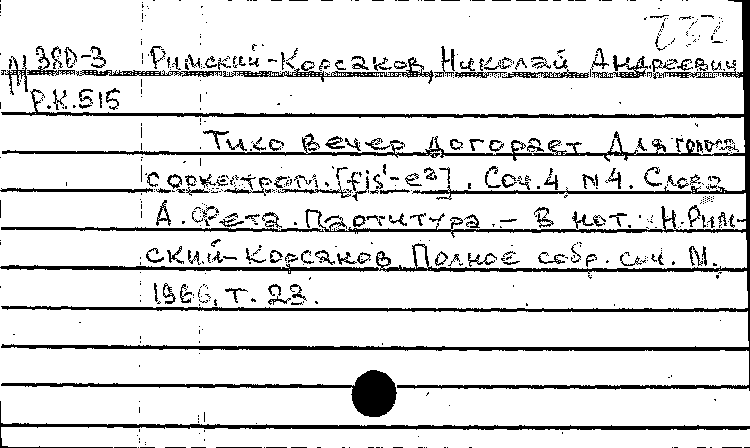 232
М 38D-3 Римский-Корсаков, Николай Андреевич
Р.К.515
Тихо вечер догорает. Для голоса
с оркестром. [fis¹-e²]. Соч.4, N4. Слова
А. Фета. Партитура. – В нот.: Н. Рим-
ский-Корсаков. Полное собр. соч. М.,
1966, т. 23.